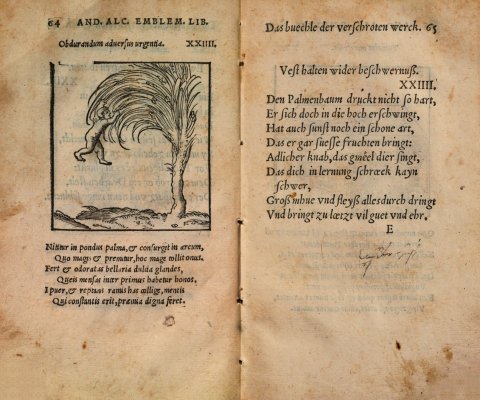 64 AND. ALC. EMBLEM. LIB.
Obdurandum adversus urgentia. XXIIII.
Nititur in pondus palma, & consurgit in arcum,
Quo magis & premitur, hoc mage tollit onus.
Fert & odoratas bellaria dulcia glandes,
Queis mensas inter primus habetur honos.
I puer, & reptans ramis has collige, mentis
Qui constantis erit, præmia digna feret.
Das buechle der verschroten werck. 65
Vest halten wider beschwernuß.
XXIIII.
Den Palmenbaum druckt nicht so hart,
Er sich doch in die hoch erschwingt,
Hat auch sunst noch ein schone art,
Das er gar suesse fruchten bringt:
Adlicher knab, das gmeel dier singt,
Das dich in lernung schreck kayn
schwer,
Groß mhue vnd fleyß alles durch dringt
Vnd bringt zu lætzt vil guet vnd ehr.
E